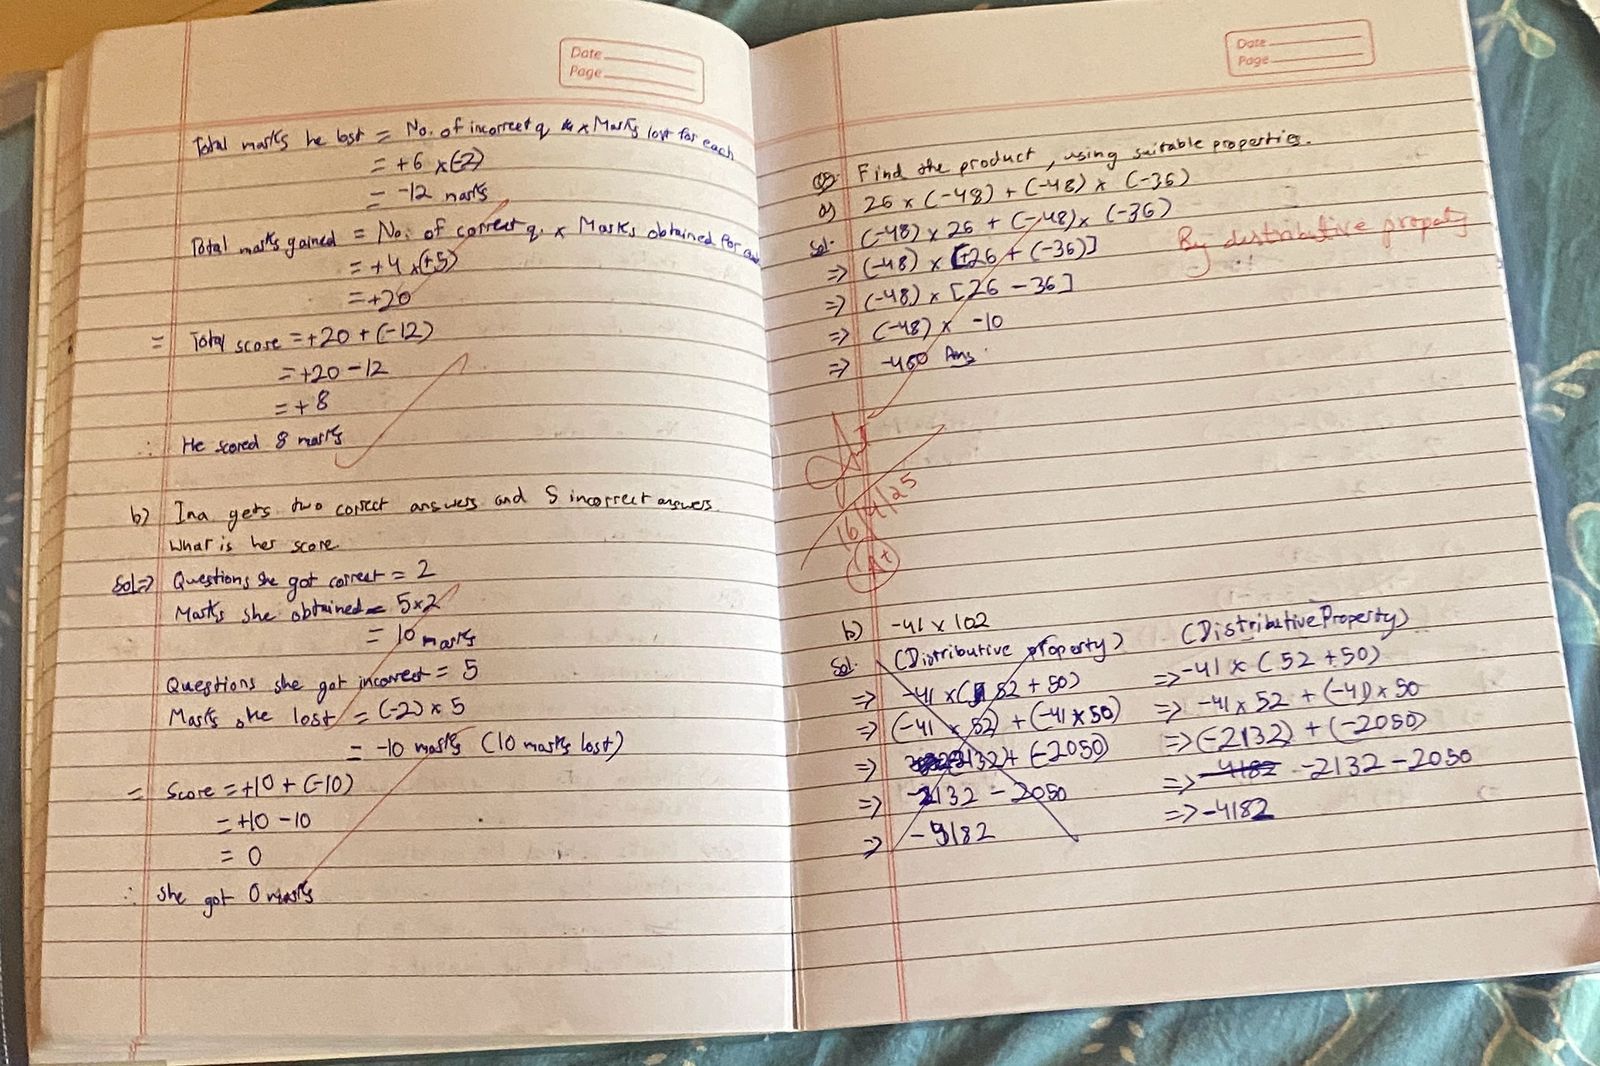 Date
Page
Total marks he lost = No. of incorrect q. × Marks lost for each
= +6 × (-2)
= -12 marks
Total marks gained = No. of correct q. × Marks obtained for
= +4 × (+5)
= +20
= Total score = +20 + (-12)
= +20 - 12
= +8
∴ He scored 8 marks
b) Ina gets two correct answers and 5 incorrect answers.
What is her score.
Sol => Questions she got correct = 2
Marks she obtained = 5×2
= 10 marks
Questions she got incorrect = 5
Marks she lost = (-2) × 5
= -10 marks (10 marks lost)
= Score = +10 + (-10)
= +10 - 10
= 0
∴ She got 0 marks
Date
Page
Find the product, using suitable properties.
a) 26 × (-48) + (-48) × (-36)
Sol. (-48) × 26 + (-48) × (-36)
=> (-48) × [+26 + (-36)] By distributive property
=> (-48) × [26 - 36]
=> (-48) × -10
=> -480 Ans.
16/4/25
A+
b) -41 × 102
Sol. (Distributive property)
=> -41 × (52 + 50)
=> (-41 × 52) + (-41 × 50)
=> 2132) + (-2050)
=> -2132 - 2050
=> -9182
(Distributive Property)
=> -41 × (52 + 50)
=> -41 × 52 + (-41) × 50
=> (-2132) + (-2050)
=> -4182 -2132 - 2050
=> -4182